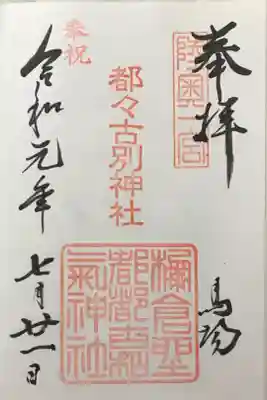 奉拝
陸奥一宮
馬場
都々古別神社
棚倉聖
都都古和
氣神社
奉祝
令和元年七月廿一日